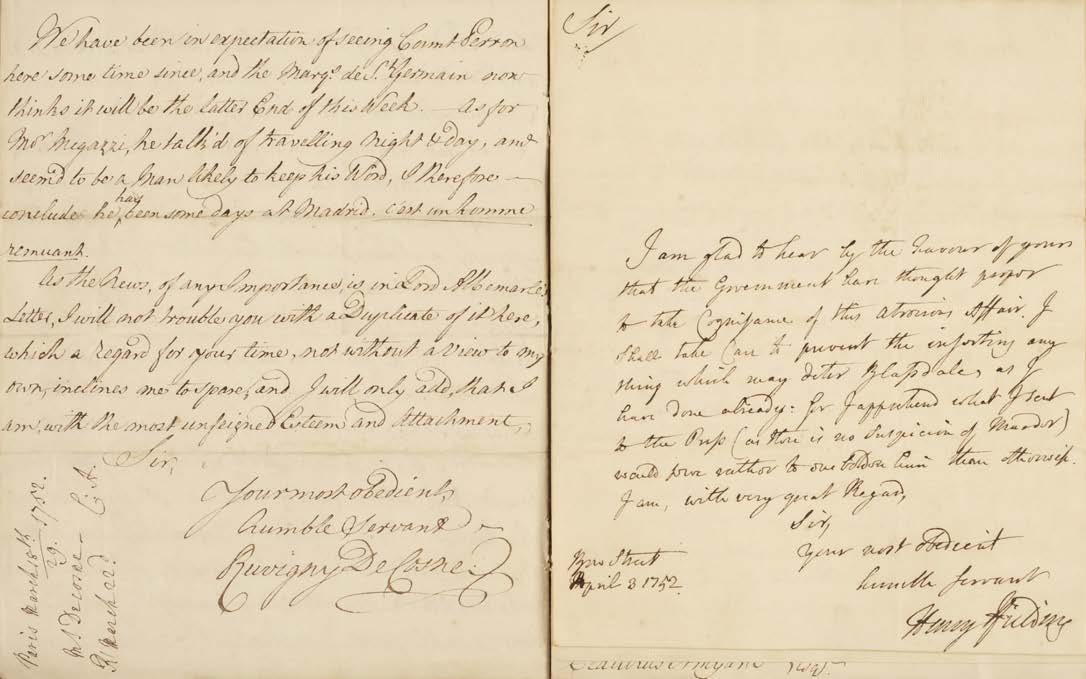 We have been in expectation of seeing Count Perron
here some time since, and the Marqs. de St. Germain now
thinks it will be the latter End of this Week. — As for
Mor. Migazzi, he talk'd of travelling Night & Day, and
seem'd to be a Man likely to keep his Word, I therefore —
conclude he has been some days at Madrid. c'est un homme
remuant.
As the News, of any Importance, is in Lord Albemarle's
Letter, I will not trouble you with a Duplicate of it here,
which a regard for your time, not without a view to my
own, inclines me to spare, and I will only add, that I
am, with the most unfeigned Esteem and Attachment,
Sir,
Your most obedient,
humble Servant
Ruvigny De Cosne.
Paris March 18th/29. 1752.
Mr. Decosne —
R. March 22d.
Sir
I am glad to hear by the Favour of yours
that the Government have thought proper
to take Cognisance of this atrocious Affair. I
shall take Care to prevent the inserting any
thing which may deter Blassdale, as I
have done already: for I apprehend what I sent
to the Press (as there is no Suspicion of Murder)
would serve rather to embolden him than otherwise.
I am, with very great Regard,
Sir,
Your most obedient
humble Servant
Henry Ffielding
Bow Street
April 3 1752